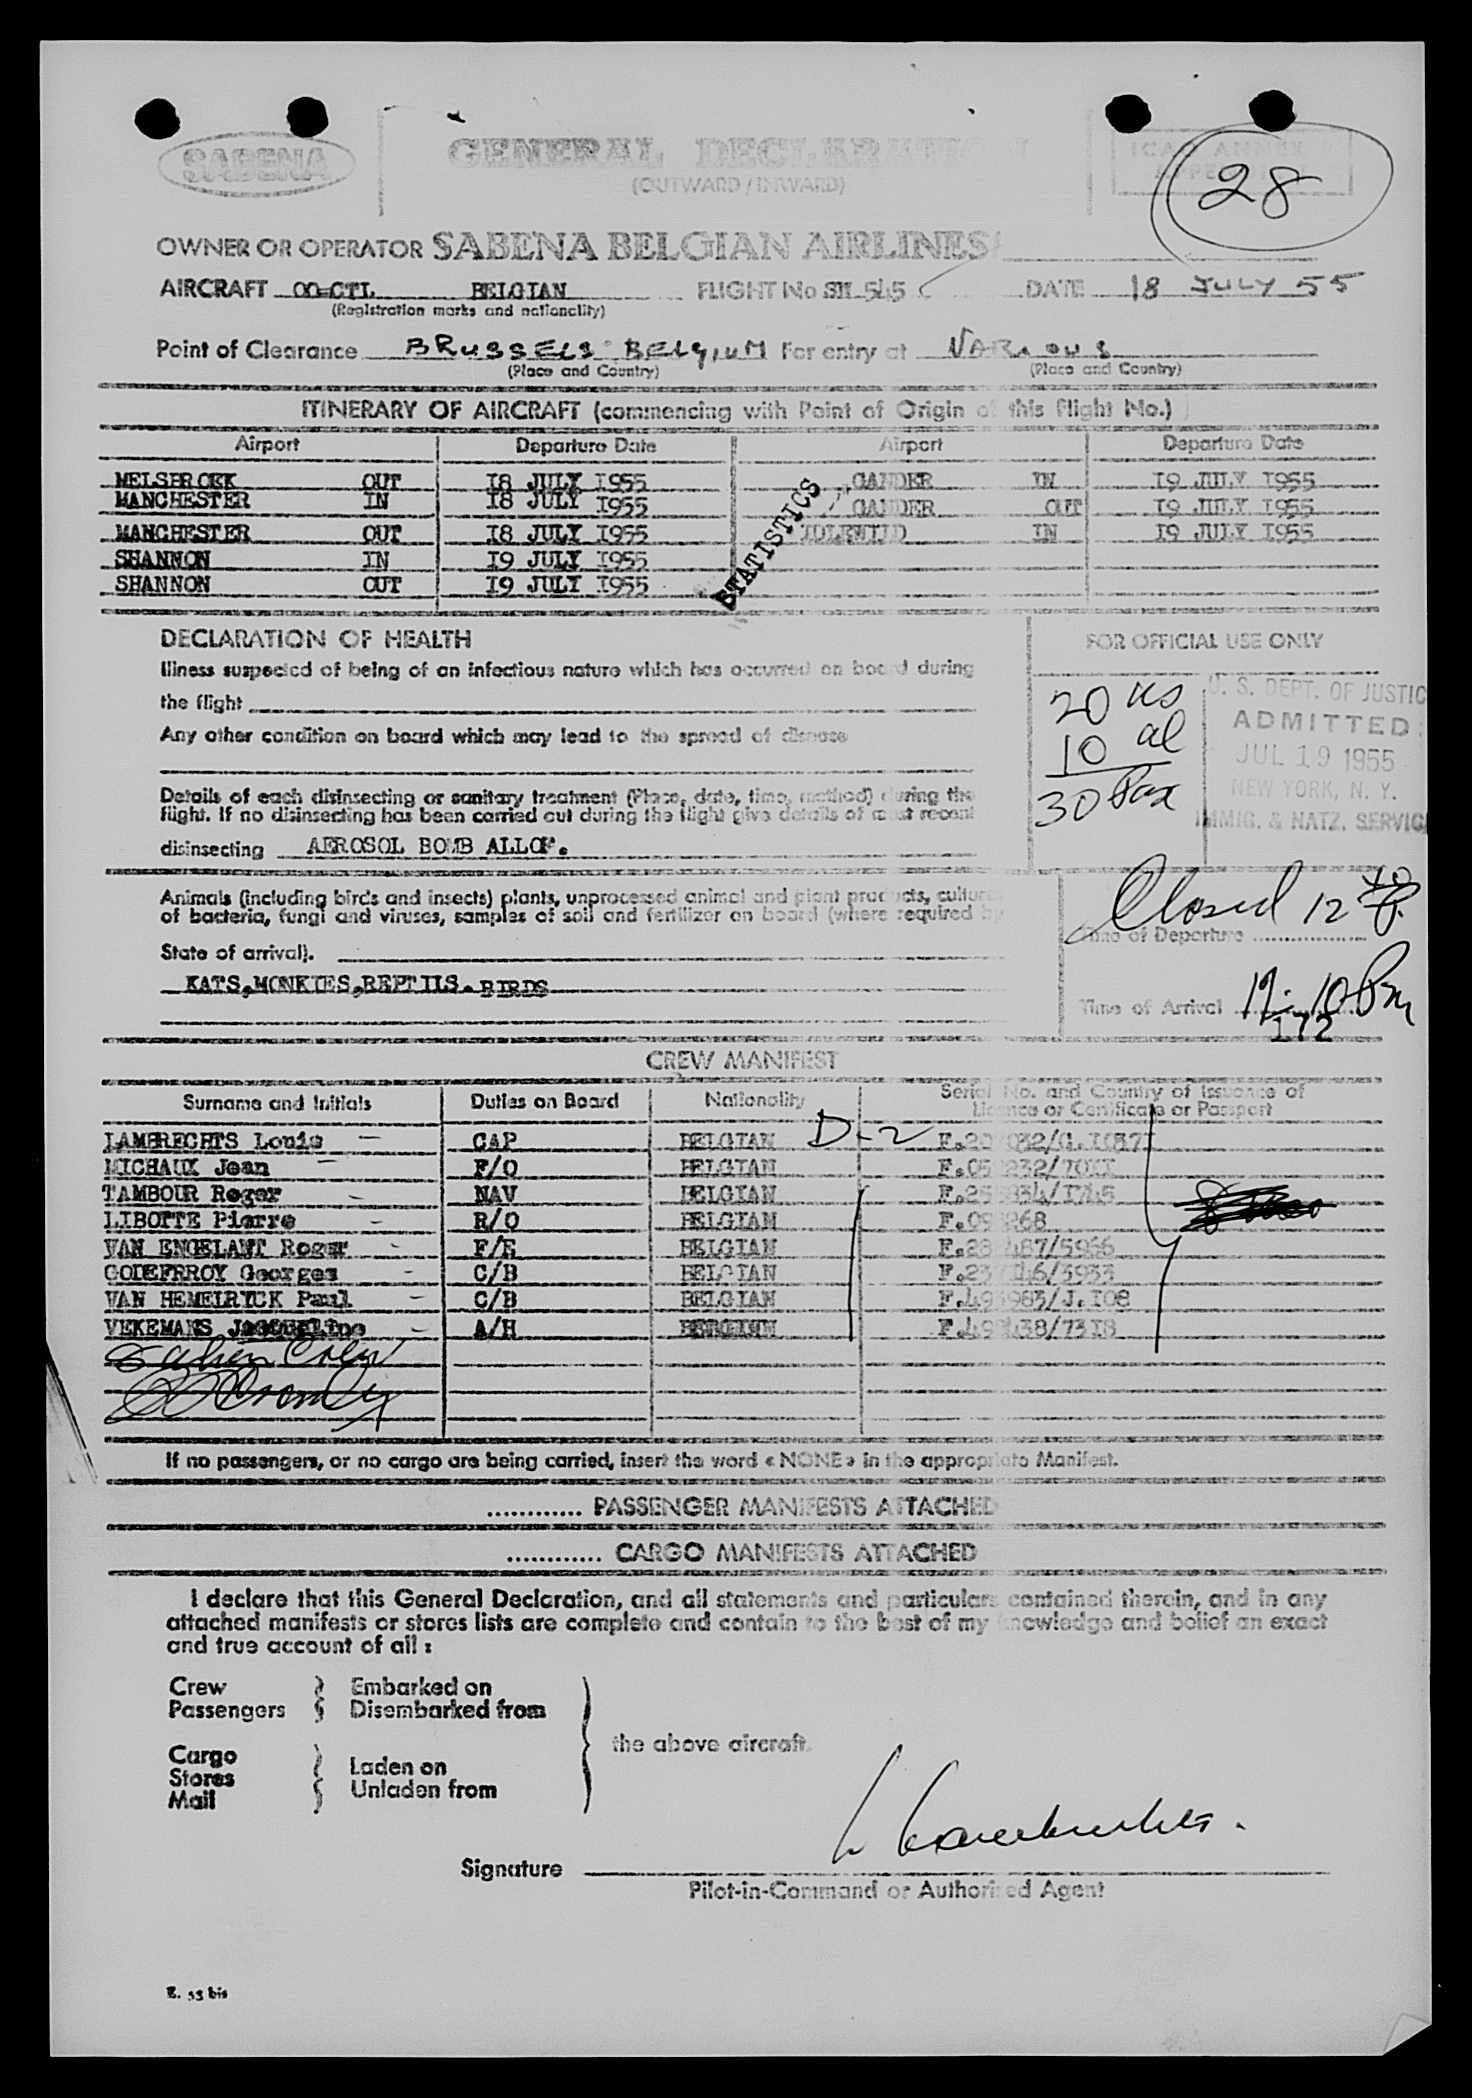 SABENA
GENERAL DECLARATION
(OUTWARD / INWARD)
ICAO ANNEX
28
OWNER OR OPERATOR SABENA BELGIAN AIRLINES
AIRCRAFT OO-CTL BELGIAN FLIGHT No SN 545 DATE 18 JULY 55
(Registration marks and nationality)
Point of Clearance BRUSSELS BELGIUM For entry at VARIOUS
(Place and Country) (Place and Country)
ITINERARY OF AIRCRAFT (commencing with Point of Origin of this flight No.)
Airport Departure Date Airport Departure Date
MELSBROEK OUT 18 JULY 1955 GANDER IN 19 JULY 1955
MANCHESTER IN 18 JULY 1955 GANDER OUT 19 JULY 1955
MANCHESTER OUT 18 JULY 1955 IDLEWILD IN 19 JULY 1955
SHANNON IN 19 JULY 1955
SHANNON OUT 19 JULY 1955
STATISTICS
DECLARATION OF HEALTH
Illness suspected of being of an infectious nature which has occurred on board during
the flight
Any other condition on board which may lead to the spread of disease
Details of each disinsecting or sanitary treatment (Place, date, time, method) during the
flight. If no disinsecting has been carried out during the flight give details of most recent
disinsecting AEROSOL BOMB ALLOF.
FOR OFFICIAL USE ONLY
20 us
10 al
30 Pax
U. S. DEPT. OF JUSTIC
ADMITTED:
JUL 19 1955
NEW YORK, N. Y.
IMMIG. & NATZ. SERVIC
Animals (including birds and insects) plants, unprocessed animal and plant products, cultures
of bacteria, fungi and viruses, samples of soil and fertilizer on board (where required by
State of arrival).
KATS,MONKIES,REPTILS.BIRDS
Closed 12 40 P.
Time of Departure
Time of Arrival 12:10 Pm
172
CREW MANIFEST
Surname and Initials Duties on Board Nationality Serial No. and Country of Issuance of
Licence or Certificate or Passport
LAMBRECHTS Louis CAP BELGIAN D-2
MICHAUX Jean F/O BELGIAN
TAMBOUR Roger NAV BELGIAN
LIBOTTE Pierre R/O BELGIAN
VAN ENGELANT Roger F/E BELGIAN
GODEFRROY Georges C/B BELGIAN
VAN HEMELRYCK Paul C/B BELGIAN
VEKEMANS Jacqueline A/H BELGIAN
If no passengers, or no cargo are being carried, insert the word « NONE » in the appropriate Manifest.
............ PASSENGER MANIFESTS ATTACHED
............ CARGO MANIFESTS ATTACHED
I declare that this General Declaration, and all statements and particulars contained therein, and in any
attached manifests or stores lists are complete and contain to the best of my knowledge and belief an exact
and true account of all :
Crew Embarked on
Passengers Disembarked from
the above aircraft.
Cargo
Stores Laden on
Mail Unladen from
Signature
Pilot-in-Command or Authorised Agent
E. 33 bis